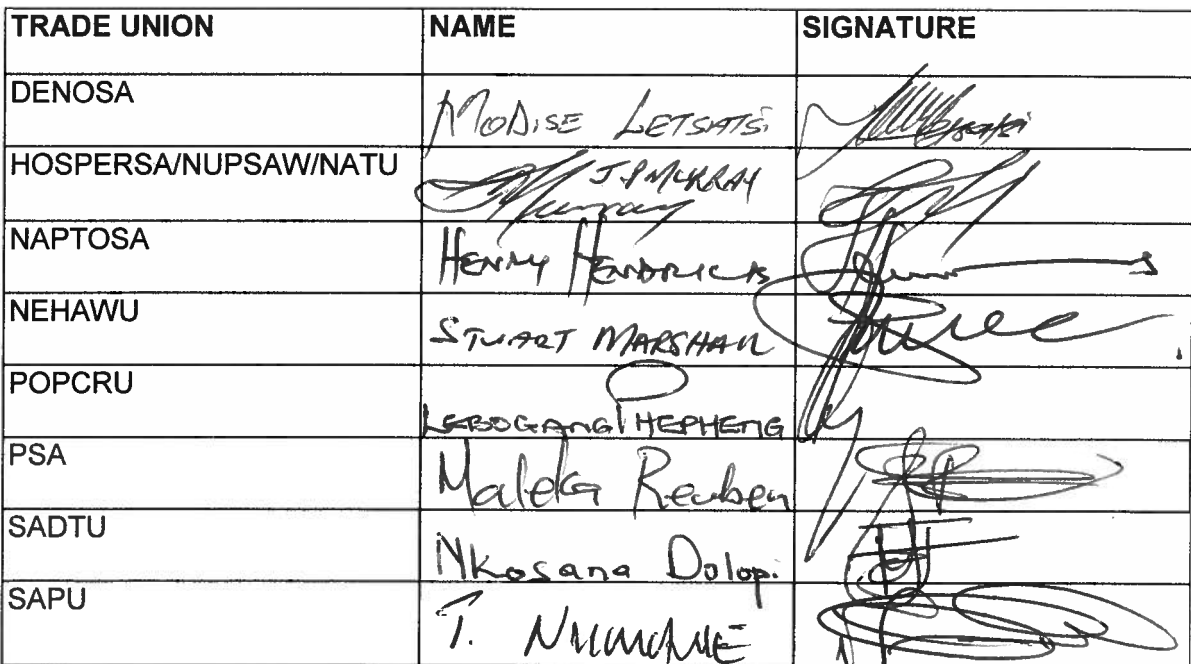 TRADE UNION NAME SIGNATURE
DENOSA MODISE LETSATSI
HOSPERSA/NUPSAW/NATU J.P MURRAY
NAPTOSA HENRY HENDRICKS
NEHAWU STUART MARSHALL
POPCRU LEBOGANG PHEPHENG
PSA Maleka Reuben
SADTU Nkosana Dolopi
SAPU T.